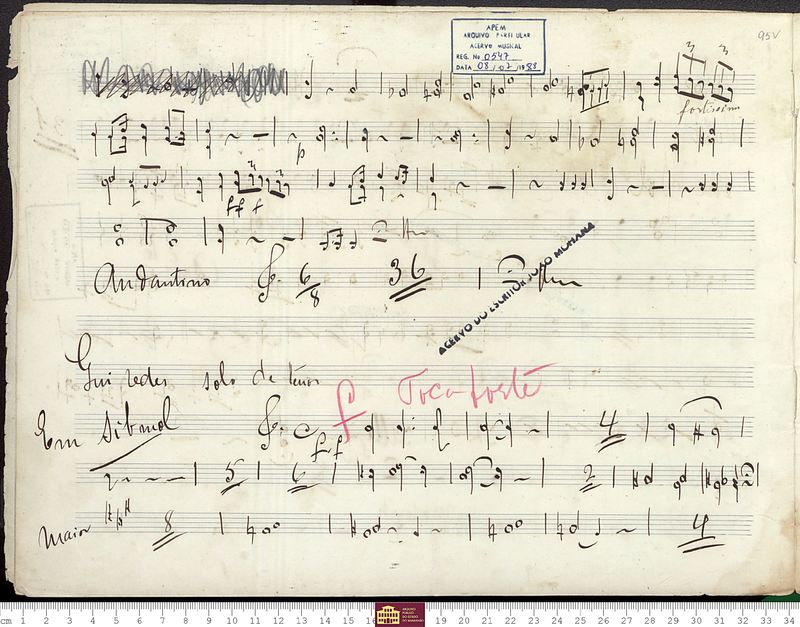 95V
APEM
ARQUIVO PARTICULAR
ACERVO MUSICAL
REG. No 0547
DATA 08/02/1988
3 3
fortissimo
p
3 3
ff f
Andantino 6/8 36
ACERVO DO ESCRITOR JOÃO MOHANA
solo de tenor
f Toca forte
Em Sibmol ff 4
5 6 2
Maior 8 4
cm 1 2 3 4 5 6 7 8 9 10 11 12 13 14 15 16 18 19 20 21 22 23 24 25 26 27 28 29 30 31 32 33 34